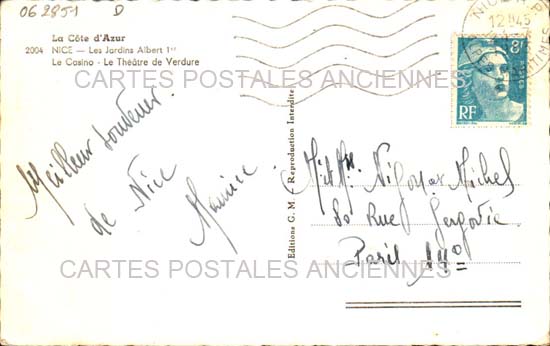 062851 D
La Côte d'Azur
2004 NICE — Les Jardins Albert 1er
Le Casino - Le Théâtre de Verdure
CARTES POSTALES ANCIENNES
Meilleur souvenir
de Nice
Maurice
Editions G. M. - Reproduction Interdite
12H45
8F
RF
M. et Mme Michel
80 Rue Gergovie
Paris 14e
CARTES POSTALES ANCIENNES